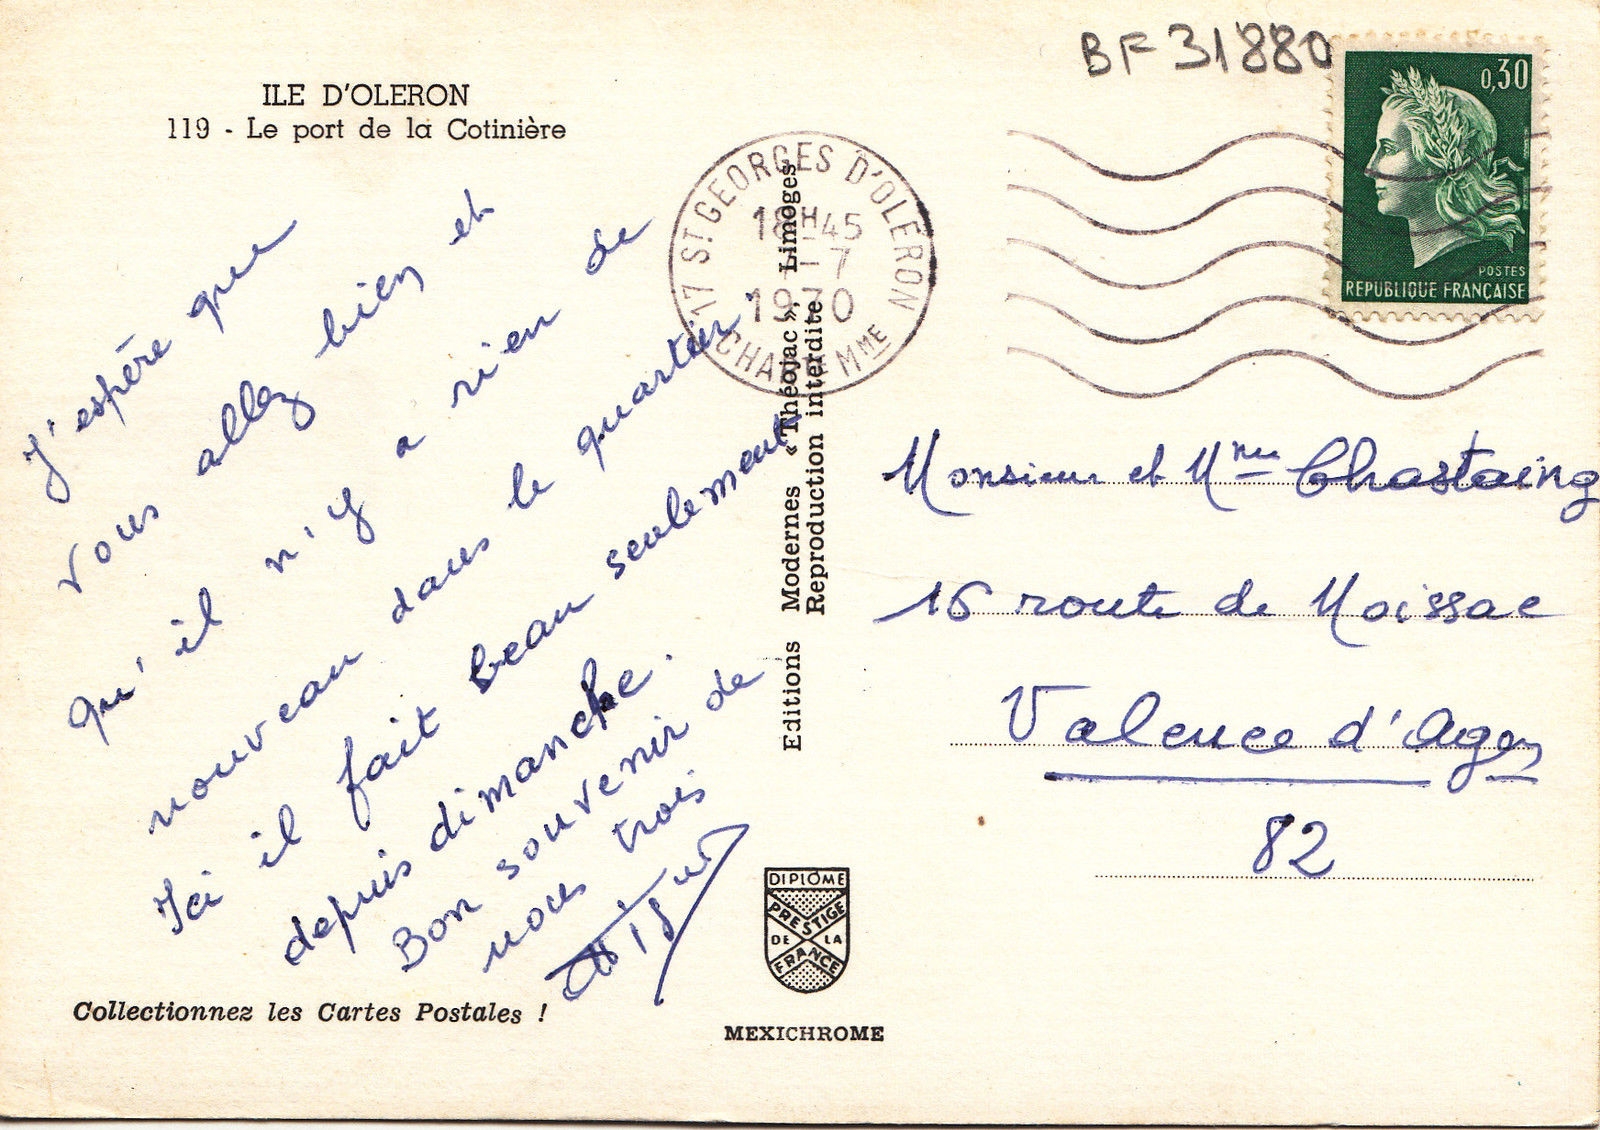 ILE D'OLERON
119 - Le port de la Cotinière
J'espère que
vous allez bien et
qu'il n'y a rien de
nouveau dans le quartier.
Ici il fait beau seulement
depuis dimanche.
Bon souvenir de
nous trois
Collectionnez les Cartes Postales !
Editions Modernes « Théojac », Limoges
Reproduction interdite
DIPLÔME
PRESTIGE
DE LA
FRANCE
MEXICHROME
17 ST GEORGES D'OLERON
18H45
-7
1970
CHAR MME
BF 31880
0,30
POSTES
REPUBLIQUE FRANÇAISE
Monsieur et Mme Chastaing
16 route de Moissac
Valence d'Agen
82